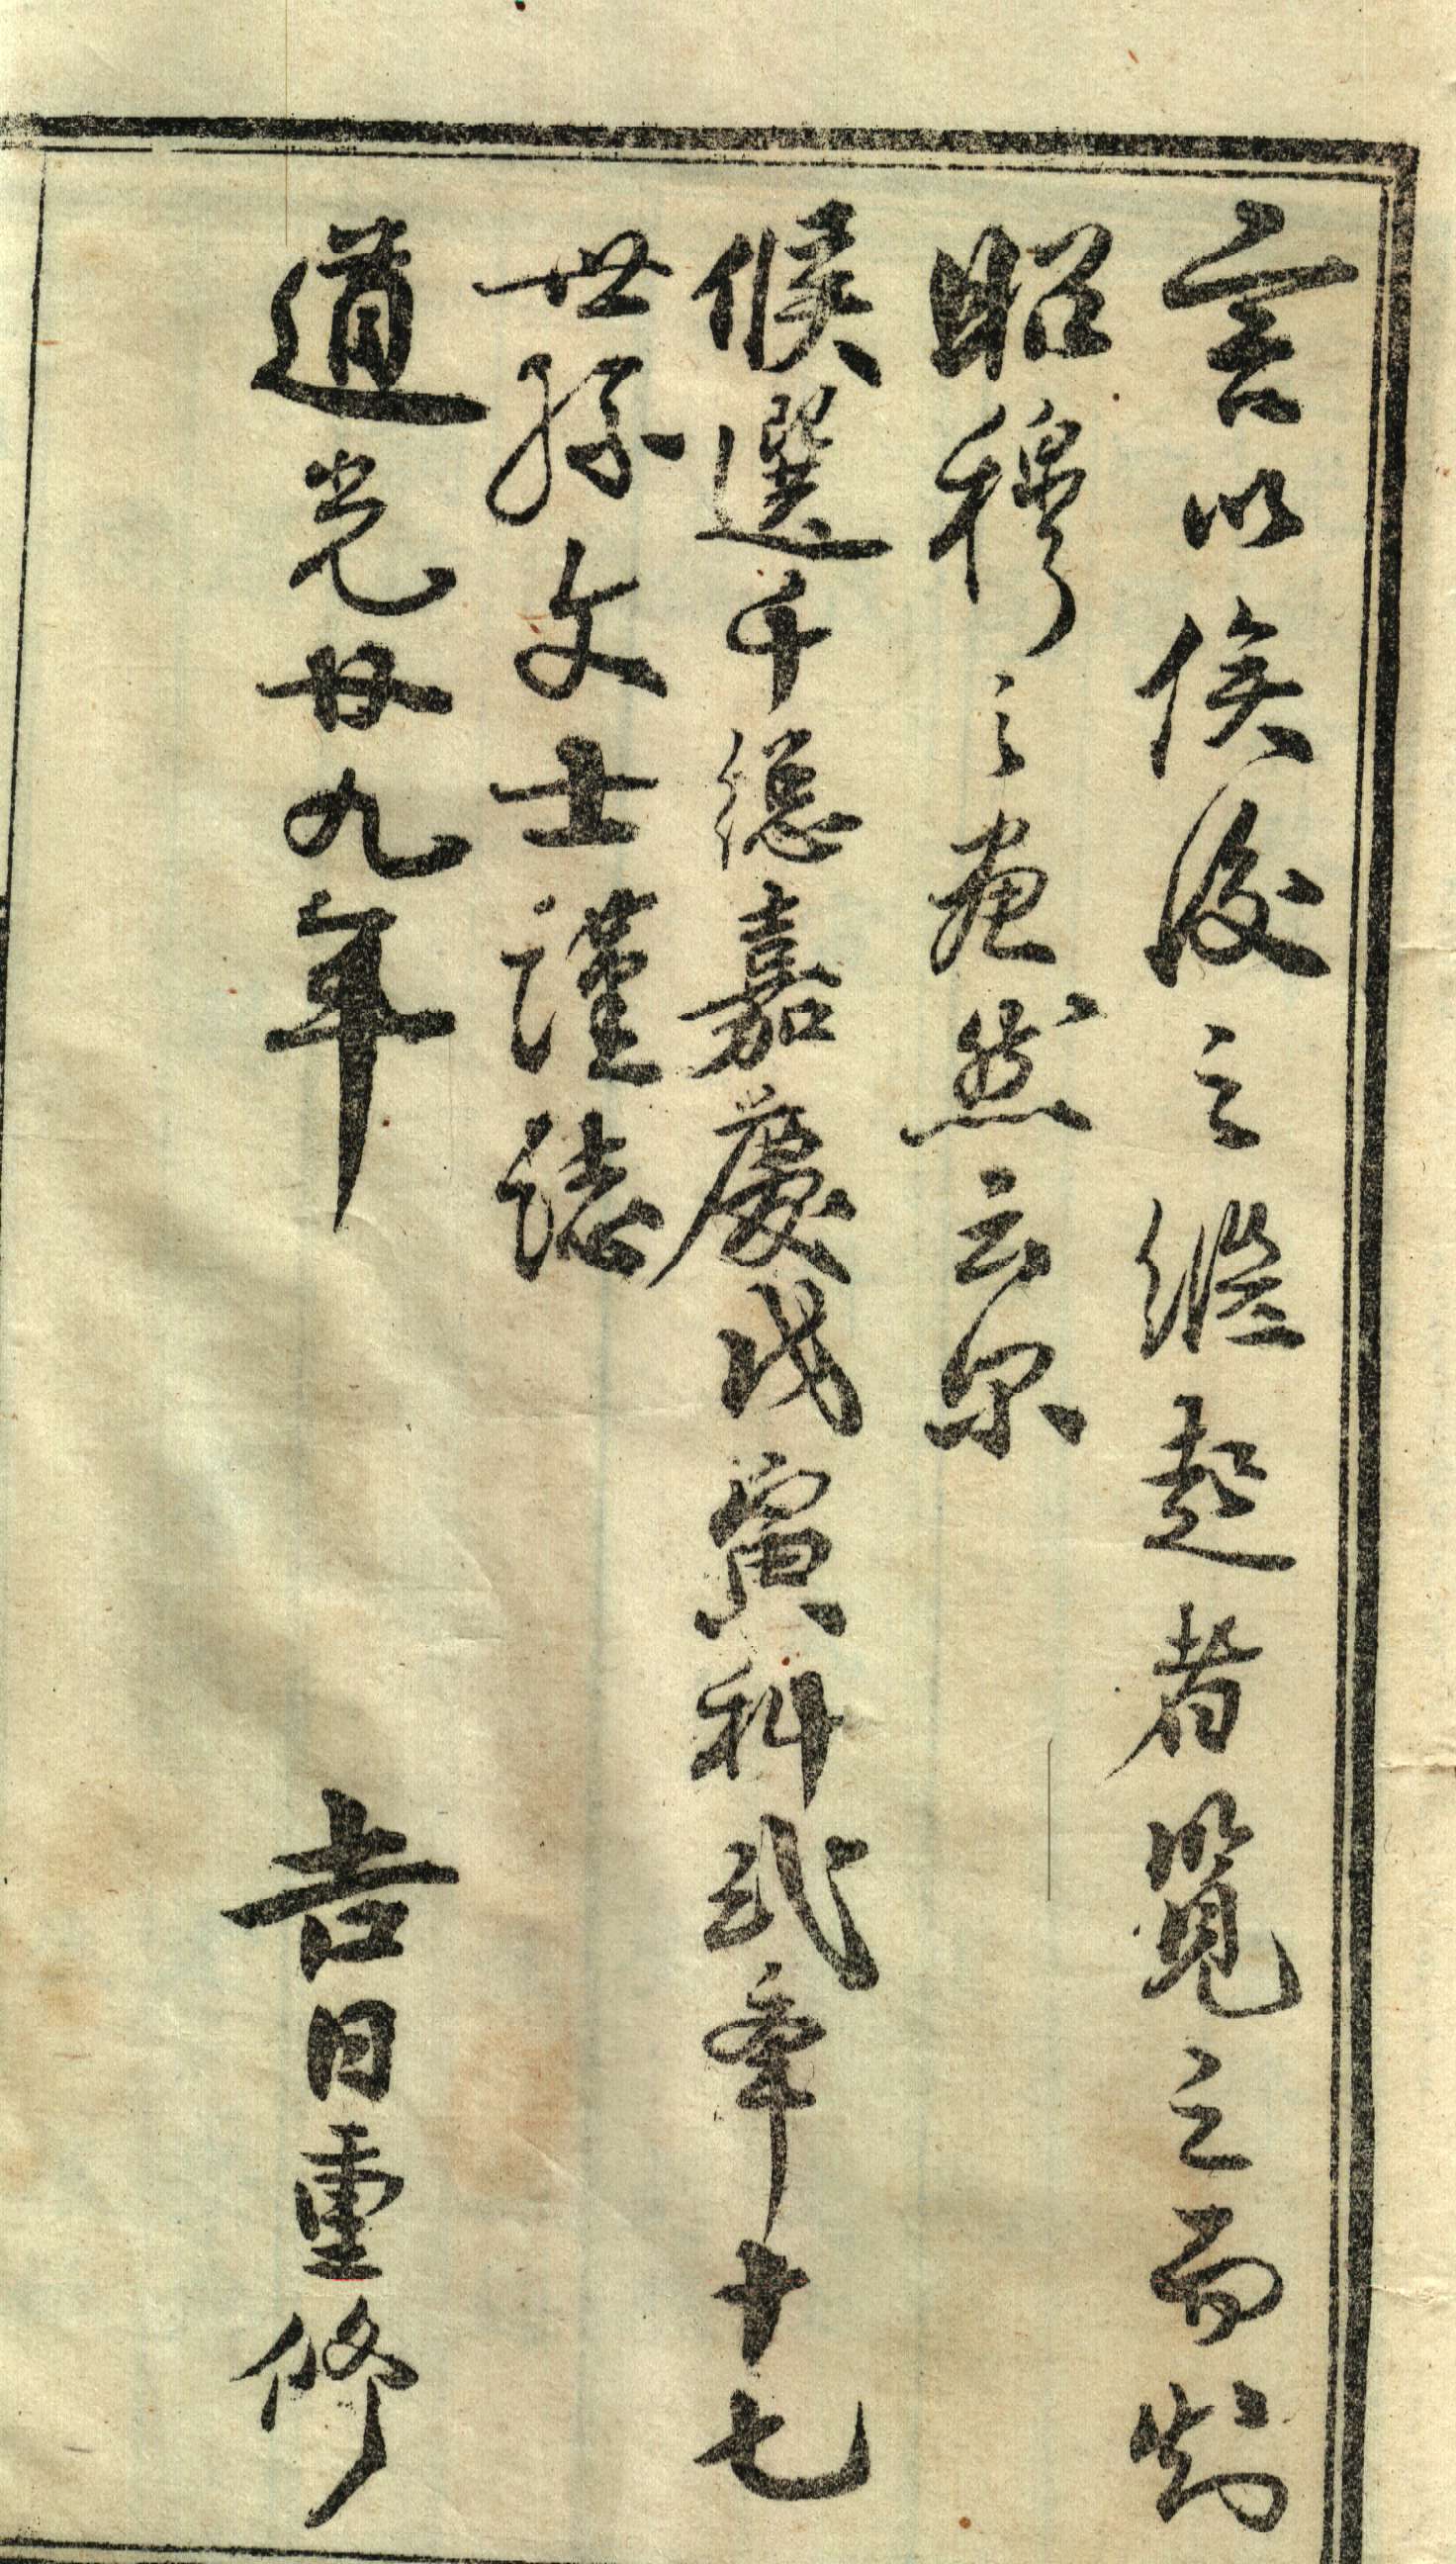 言以俟後之繼起者覽之而知
昭穆之畫然云尔
候選千總嘉慶戊寅科武舉十七
世孫文士謹誌
道光廿九年 吉日重修